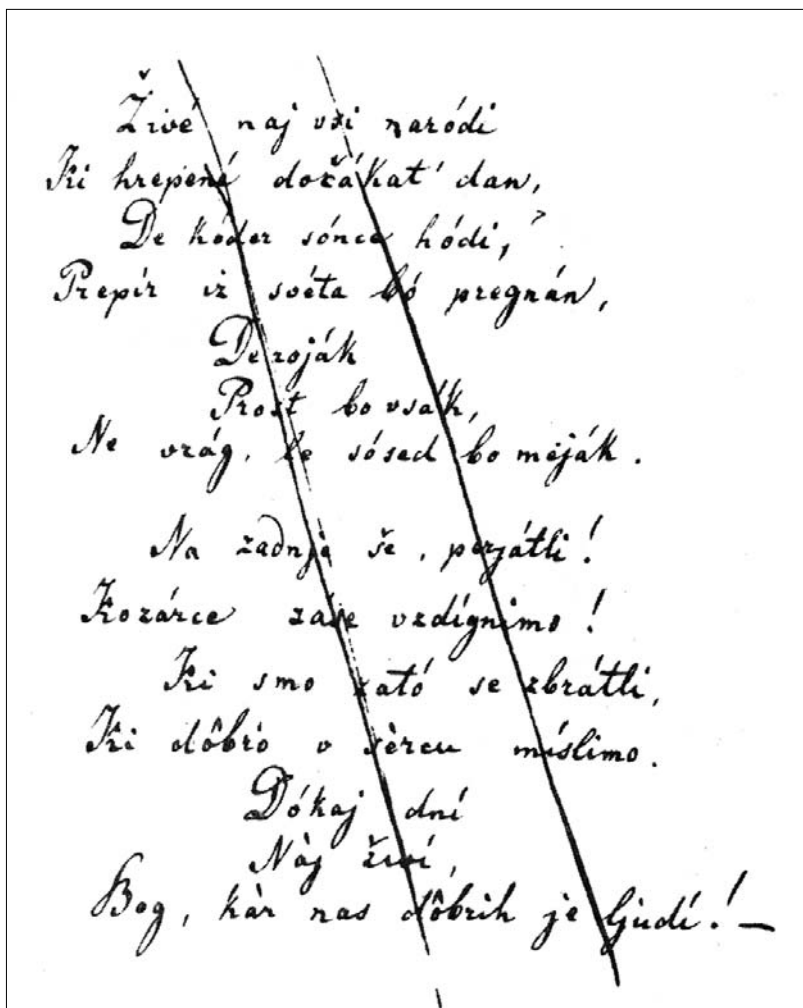 Živé naj vsi naródi
Ki hrepené dočákat' dan,
De kóder sónce hódi,
Prepír iz svéta bó pregnán,
De roják
Prost bo vsák,
Ne vrág, le sósed bo meják.
Na zadnje še, perjátli!
Kozárce záse vzdígnimo!
Ki smo zató se zbrátli,
Ki dôbro v sèrcu míslimo.
Dókaj dní
Nàj živí,
Bog, kàr nas dôbrih je ljudí! —